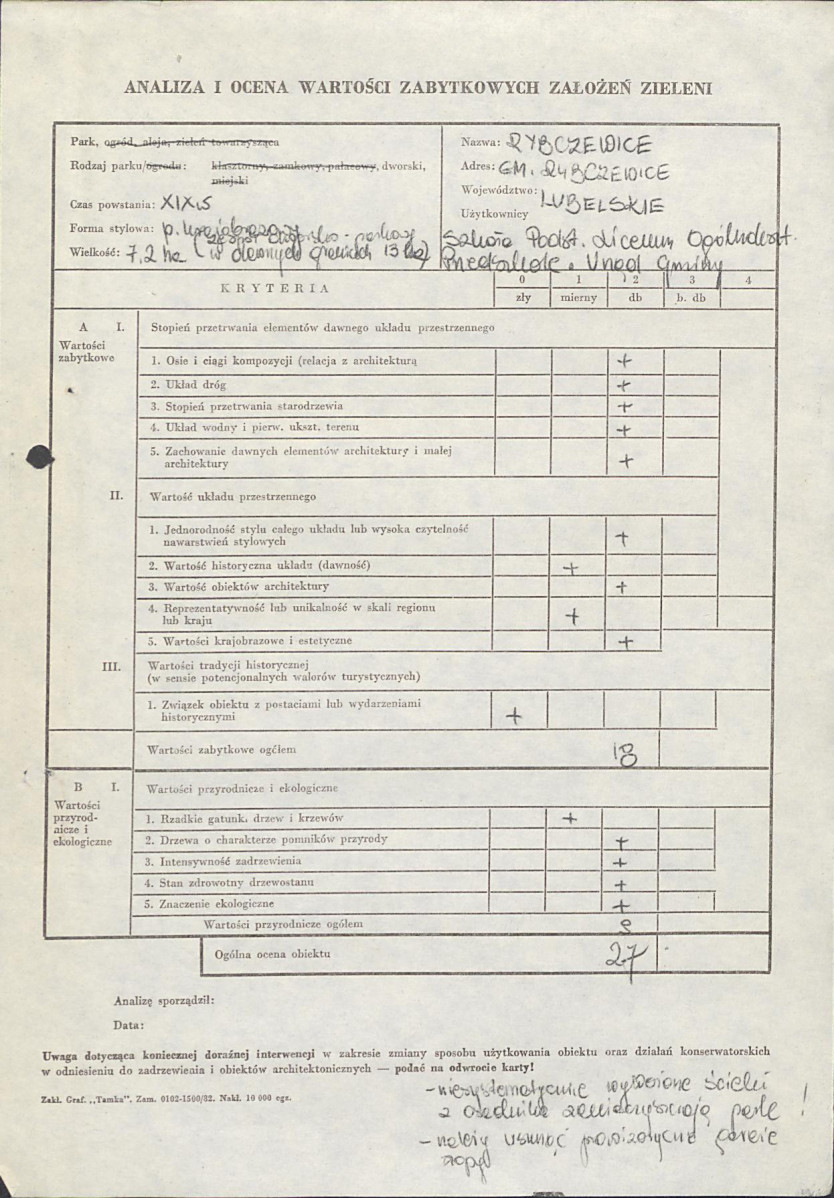 ANALIZA I OCENA WARTOŚCI ZABYTKOWYCH ZAŁOŻEŃ ZIELENI
Park, ogród, aleja, zieleń towarzysząca
Rodzaj parku/ogrodu: klasztorny, zamkowy, pałacowy, dworski,
miejski
Czas powstania: XIX/S
Forma stylowa: p. krajobrazowy
Wielkość: 7,2 ha (zespół dworsko-parkowy
w dawnych granicach 13 ha)
Nazwa: RYBCZEWICE
Adres: GM. RYBCZEWICE
Województwo: LUBELSKIE
Użytkownicy
Szkoła Podst. Liceum Ogólnokszt.
Przedszkole. Urząd Gminy
KRYTERIA
0 1 2 3 4
zły mierny db b. db
A I. Stopień przetrwania elementów dawnego układu przestrzennego
Wartości
zabytkowe
1. Osie i ciągi kompozycji (relacja z architekturą +
2. Układ dróg +
3. Stopień przetrwania starodrzewia +
4. Układ wodny i pierw. ukszt. terenu +
5. Zachowanie dawnych elementów architektury i małej
architektury +
II. Wartość układu przestrzennego
1. Jednorodność stylu całego układu lub wysoka czytelność
nawarstwień stylowych +
2. Wartość historyczna układu (dawność) +
3. Wartość obiektów architektury +
4. Reprezentatywność lub unikalność w skali regionu
lub kraju +
5. Wartości krajobrazowe i estetyczne +
III. Wartości tradycji historycznej
(w sensie potencjonalnych walorów turystycznych)
1. Związek obiektu z postaciami lub wydarzeniami
historycznymi +
Wartości zabytkowe ogółem 18
B I. Wartości przyrodnicze i ekologiczne
Wartości
przyrod-
nicze i
ekologiczne
1. Rzadkie gatunk. drzew i krzewów +
2. Drzewa o charakterze pomników przyrody +
3. Intensywność zadrzewienia +
4. Stan zdrowotny drzewostanu +
5. Znaczenie ekologiczne +
Wartości przyrodnicze ogółem 9
Ogólna ocena obiektu 27
Analizę sporządził:
Data:
Uwaga dotycząca koniecznej doraźnej interwencji w zakresie zmiany sposobu użytkowania obiektu oraz działań konserwatorskich
w odniesieniu do zadrzewienia i obiektów architektonicznych — podać na odwrocie karty!
Zakł. Graf. „Tamka". Zam. 0102-1500/82. Nakł. 10 000 egz.
- niesystematycznie wywożone ścieki
z osadnika zanieczyszczają park!
- należy usunąć prowizoryczne garaże